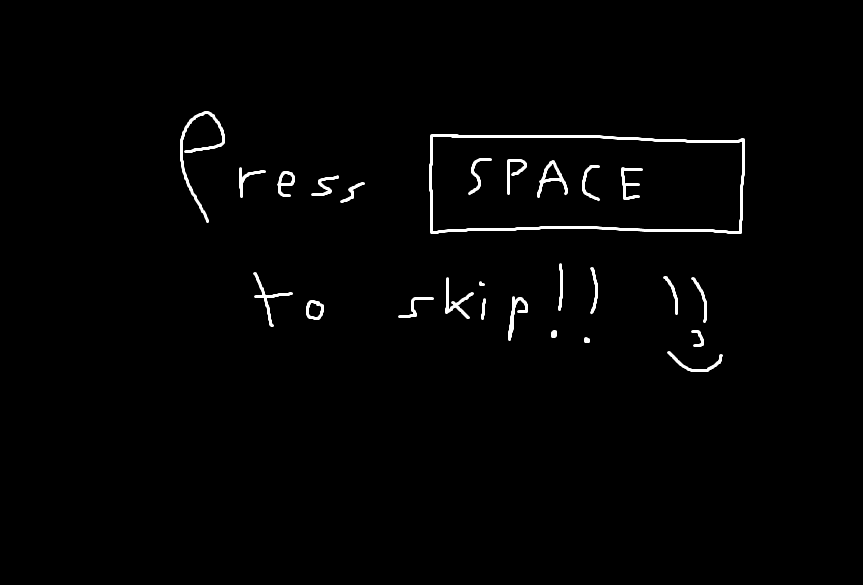 Press SPACE
to skip!!